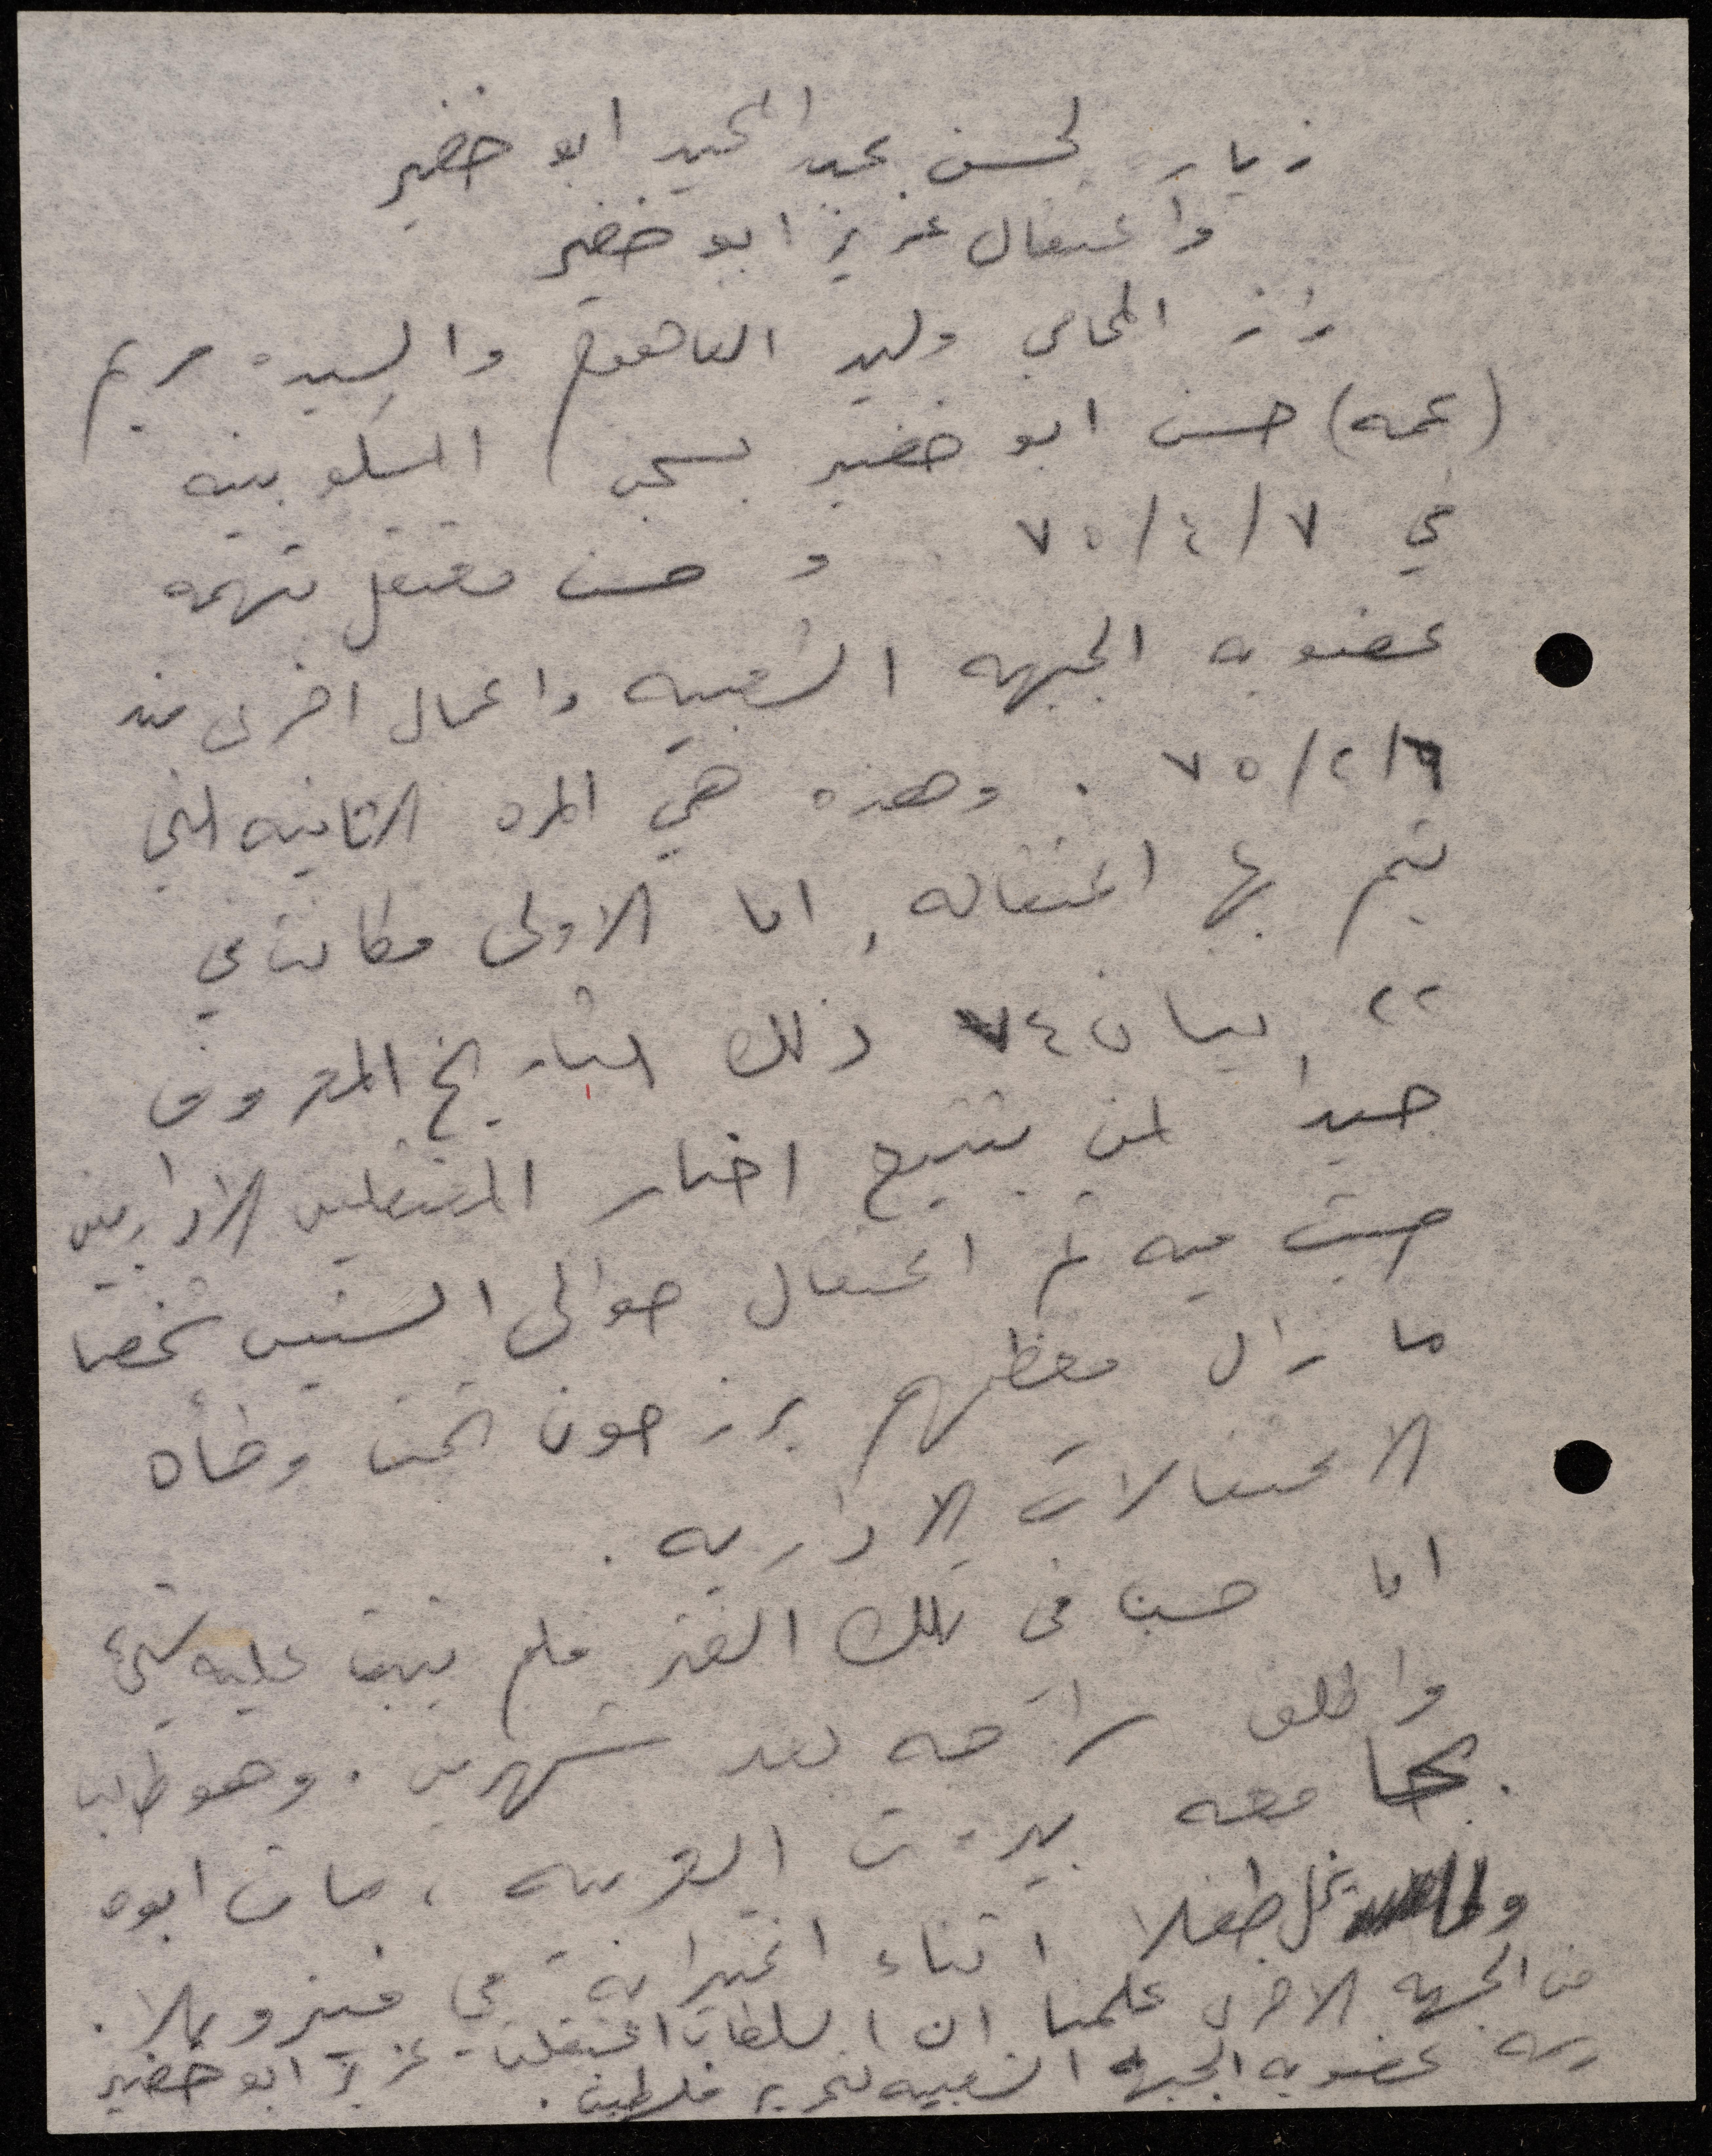 زيارة لحسن عبد الحميد ابو خضير
واعتقال عزيز ابو خضير
زار المحامي وليد الفاهوم والسيدة مريم
(عمه) حسن ابو خضير بسجن المسكوبيه
في ٧/٤/٧٥ و حسن معتقل بتهمه
عضويه الجبهه الشعبيه واعمال اخرى منذ
٦/٢/٧٥ . وهذه هي المره الثانيه التي
يتم بها اعتقاله, اما الاولى فكانت في
٢٢ نيسان ٧٤ ذلك التاريخ المعروف
جيدا لمن يتتبع اخبار المعتقلين الاداريين
حيث فيه تم اعتقال حوالي الستين شخصا
ما زال معظهم يرزحون تحت وطأه
الاعتقالات الاداريه .
اما حسن في تلك الفتره فلم يثبت عليه شيء
واطلق سراحه بعد شهرين . وهو طالب
بجامعه بيروت العربيه ، مات ابوه
طفلا اثناء اغترابه في فنزويلا .
من الجهه الاخرى علمنا ان السلطات اعتقلت عزيز ابو خضير
بتهمه عضويه الجبهه الشعبيه لتحرير فلسطين .